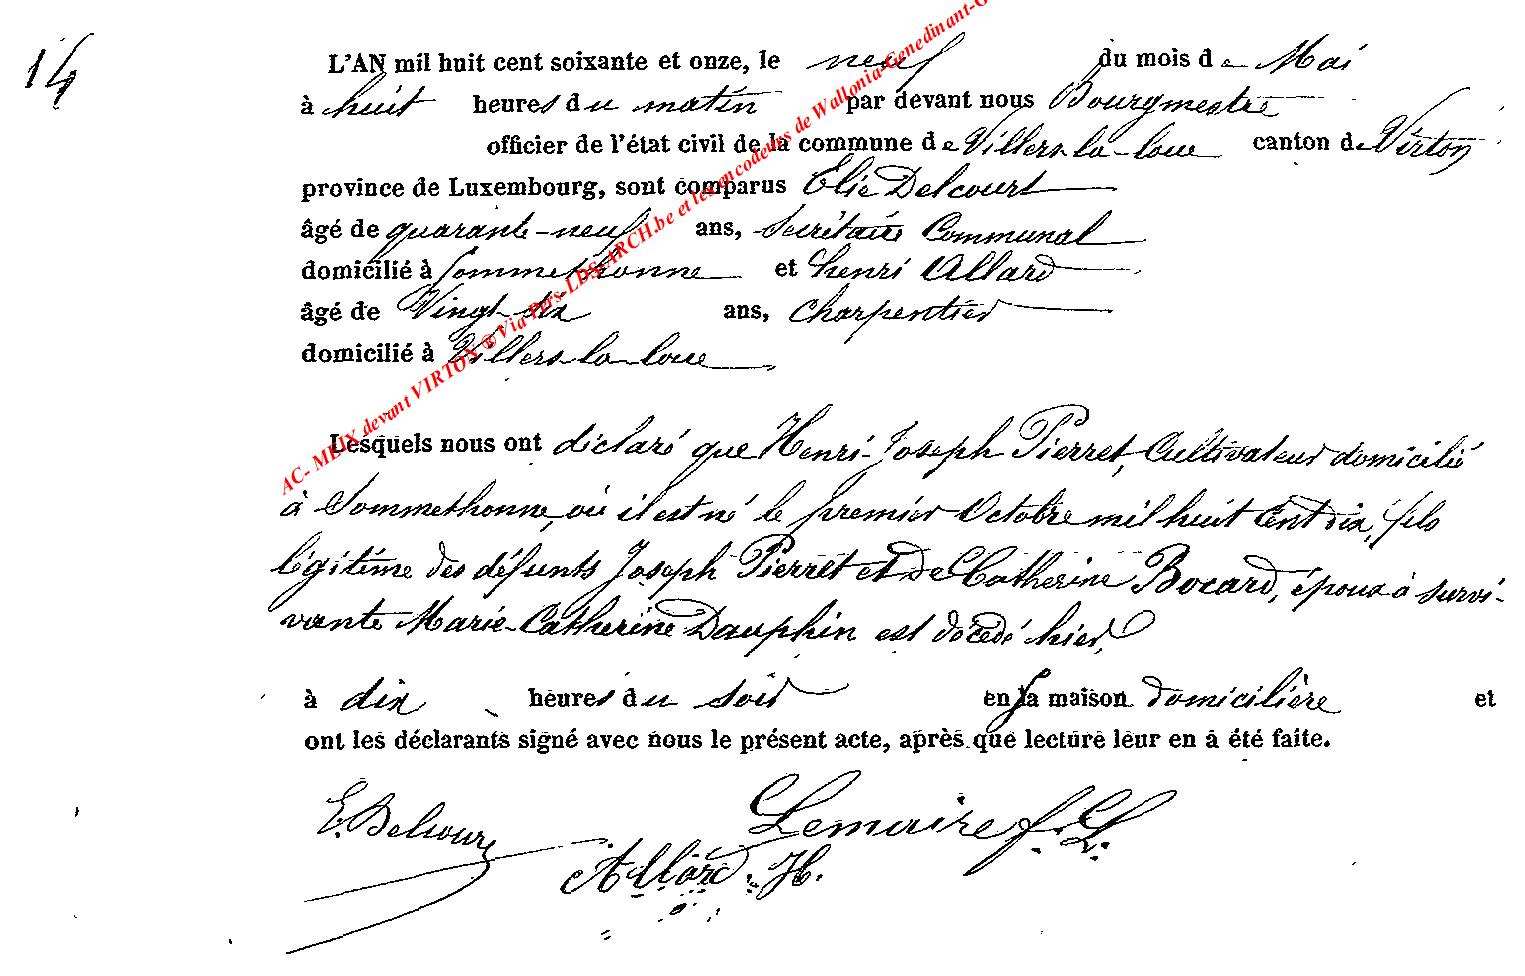 14
L'AN mil huit cent soixante et onze, le neuf du mois de Mai
à huit heures du matin par devant nous Bourgmestre
officier de l'état civil de la commune de Villers-la-loue canton de Virton
province de Luxembourg, sont comparus Elie Delcourt
âgé de quarante-neuf ans, Secrétaire Communal
domicilié à Sommethonne et henri Allard
âgé de Vingt-dix ans, Charpentier
domicilié à Villers-la-loue
AC- MEIX devant VIRTON @ Via Pers-LDS-ARCH.be et les encodeurs de Wallonia-Genedinant-G
Lesquels nous ont déclaré que Henri-Joseph Pierret, Cultivateur domicilié
à Sommethonne, où il est né le premier Octobre mil huit cent dix, fils
légitime des défunts Joseph Pierret et de Catherine Bocard, époux à survi-
vante Marie-Catherine Dauphin est décédé hier,
à dix heures du soir en sa maison domicilière et
ont les déclarants signé avec nous le présent acte, après que lecture leur en a été faite.
E. Delcourt
Lemaire f. L.
Allard. H.